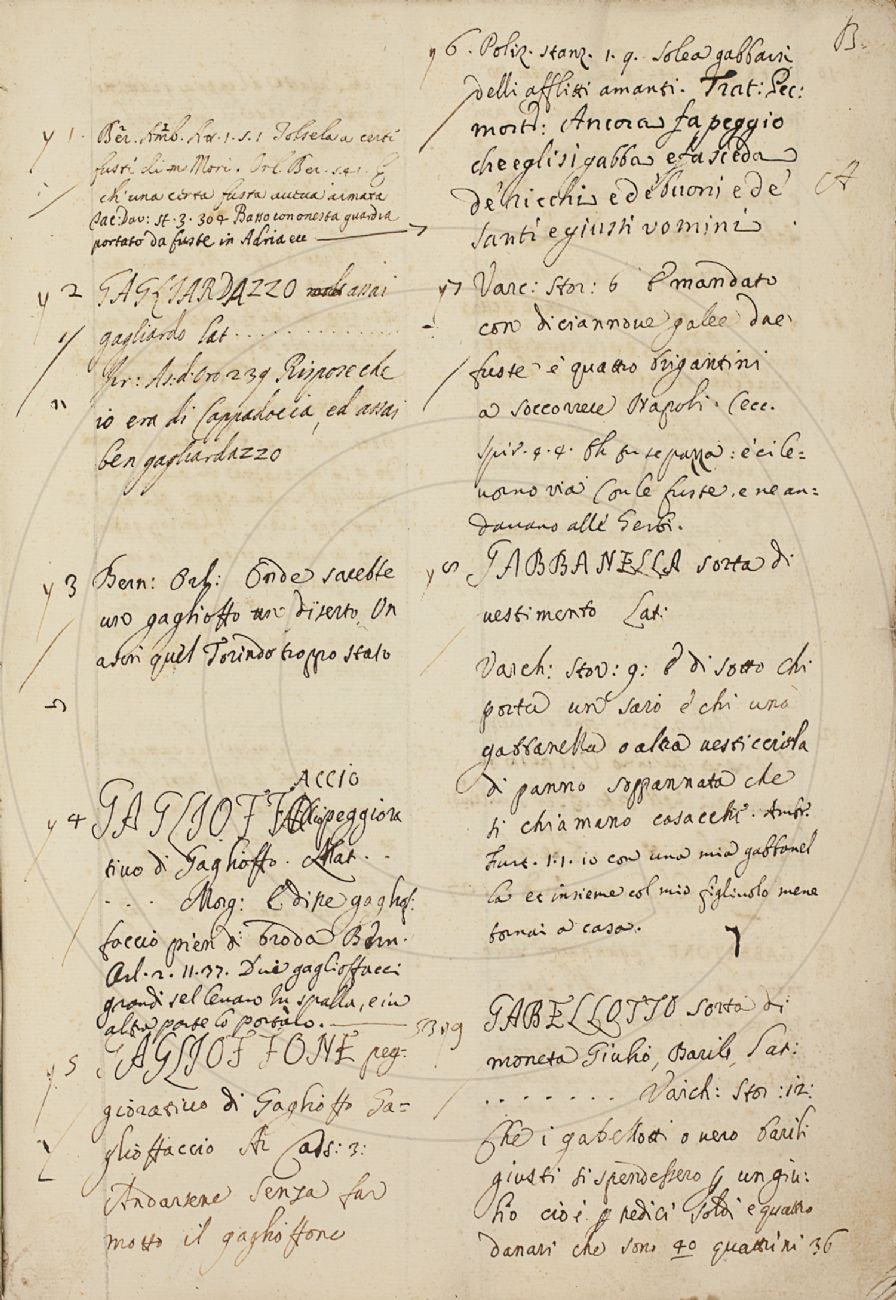 B.
y 1. Ber. Amb. At. 1. s. 1 Tolsela a certi
fusti di Mori. Orl. Ber. E
ch'una certa fusta aueua armata
Dau: st. 3. 304 Basso con onesta guardia
portato da fuste in Adria ecc
y 2 GAGLIARDAZZO assai
gagliardo Lat . . . . . . . . . . . .
Fir: As. d'oro 239 Rispose che
io era di Cappadocia, ed assai
ben gagliardazzo
y 3 Bern: Orl: Onde sarebbe
uno gaglioffo un diserto, Un
asin quel Torindo troppo stato
ACCIO
y 4 GAGLIOFF peggiora
tiuo di Gaglioffo. Lat . .
. . . Morg: E disse gagliof:
faccio pien di broda Bern.
Orl. 2. 11. 37. Due gaglioffacci
grandi sel leuaro in spalla, e in
altra parte lo portaro.
y 5 GAGLIOFFONE peg:
gioratiuo di Gaglioffo Ga=
glioffaccio Ar Cass: 3:
Andarsene senza far
motto il gaglioffone
y 6. Poliz. stanz. 1. 9. solea gabbarsi
delli afflitti amanti. Trat: Pec:
mort: Ancora fa peggio
che egli si gabba e fa sceda
A
de' ricchi e de' buoni e de'
santi e giusti vomini
y 7 Varc: Stor: 6 E mandato
con diciannoue galee due
fuste e quattro brigantini
a soccorrere Napoli. Cecc.
Spir. 4. 4. Oh fuse pazza: e ci le=
uorno via con le fuste. e ne an=
dauano alle Gerbi.
y 8 GABBANELLA sorta di
uestimento Lat:
Varch: stor: 9: E di sotto chi
porta un saio e chi una
gabbanella o altra uesticciola
di panno soppannata che
si chiamano casacche. Ambr.
Furt. 1. 1. io con una mia gabbanel
la ec insieme col mio figliuolo mene
tornai a casa.
y 9 GABELLOTTO sorta di
moneta Giulio, Barile, Lat:
. . . . . . . Varch: Stor: 12:
Che i gabellotti o uero barili
giusti si spendessero p un giu:
lio cioè p tredici soldi e quattro
danari che sono 40 quattrini 36